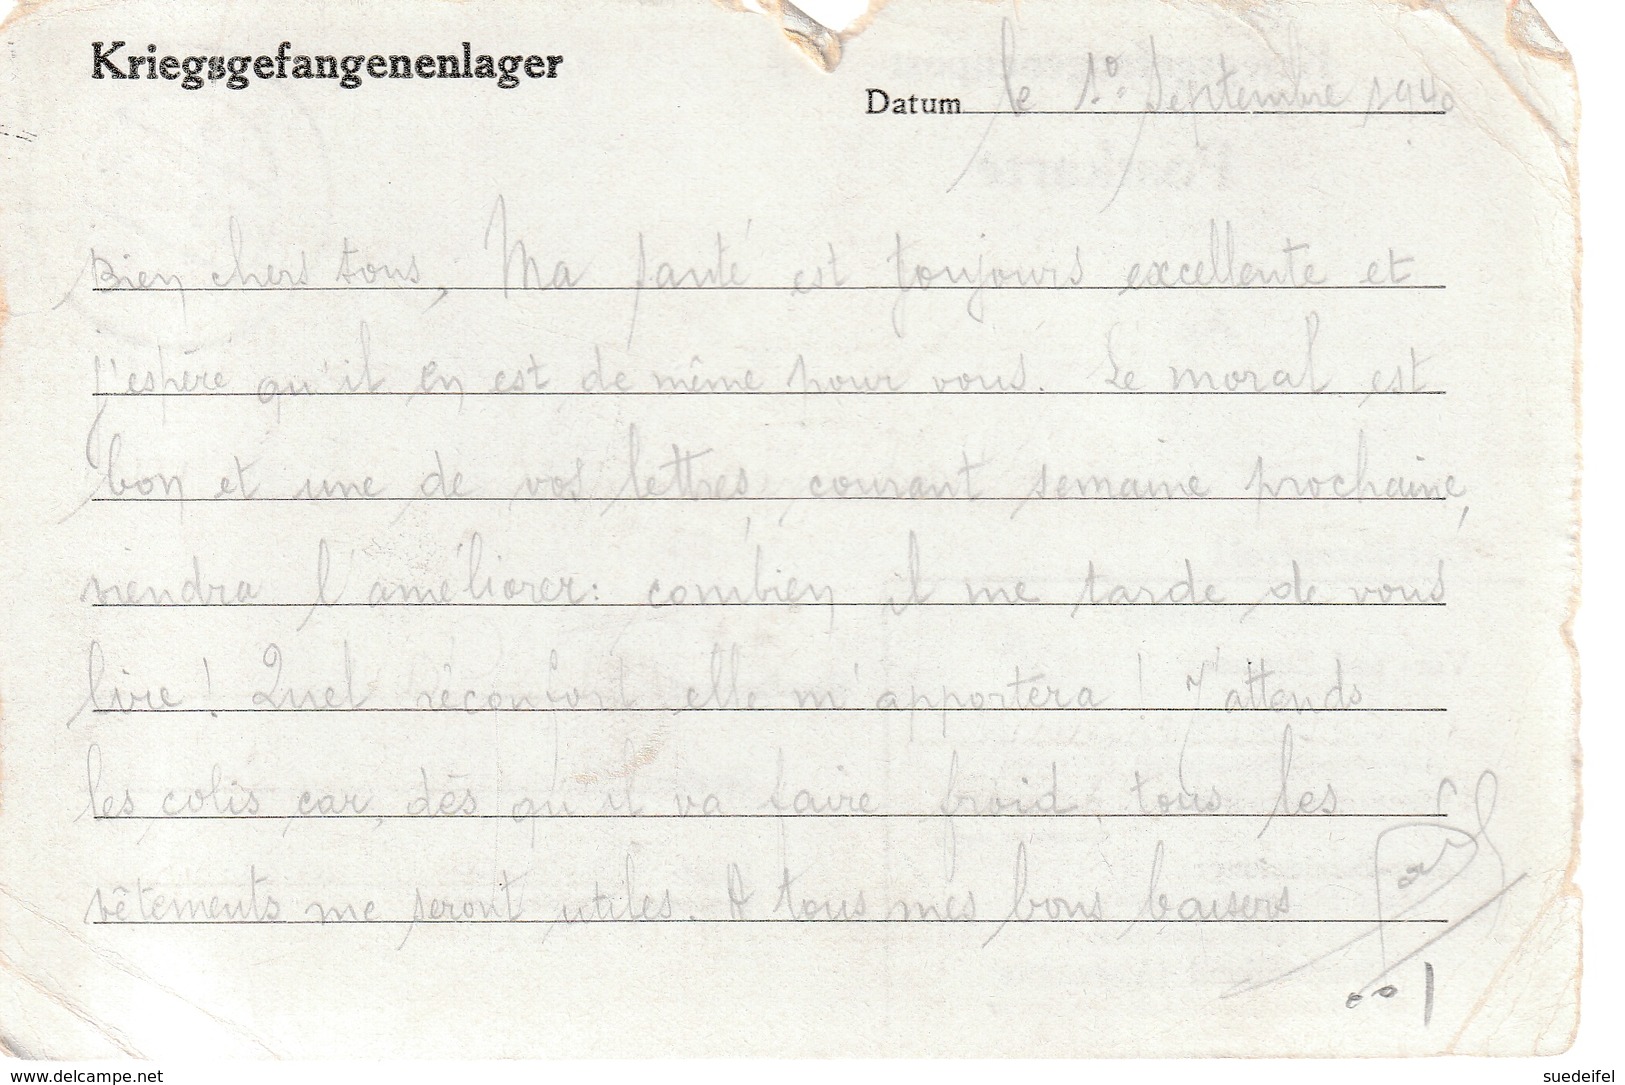 Kriegsgefangenenlager
Datum le 1º Septembre 1940
Bien chers tous, Ma santé est toujours excellente et
j'espère qu'il en est de même pour vous. Le moral est
bon et une de vos lettres, courant semaine prochaine,
viendra l'améliorer: combien il me tarde de vous
lire! Quel réconfort elle m'apportera! J'attends
les colis car, dès qu'il va faire froid, tous les
vêtements me seront utiles. A tous mes bons baisers
www.delcampe.net
suedeifel